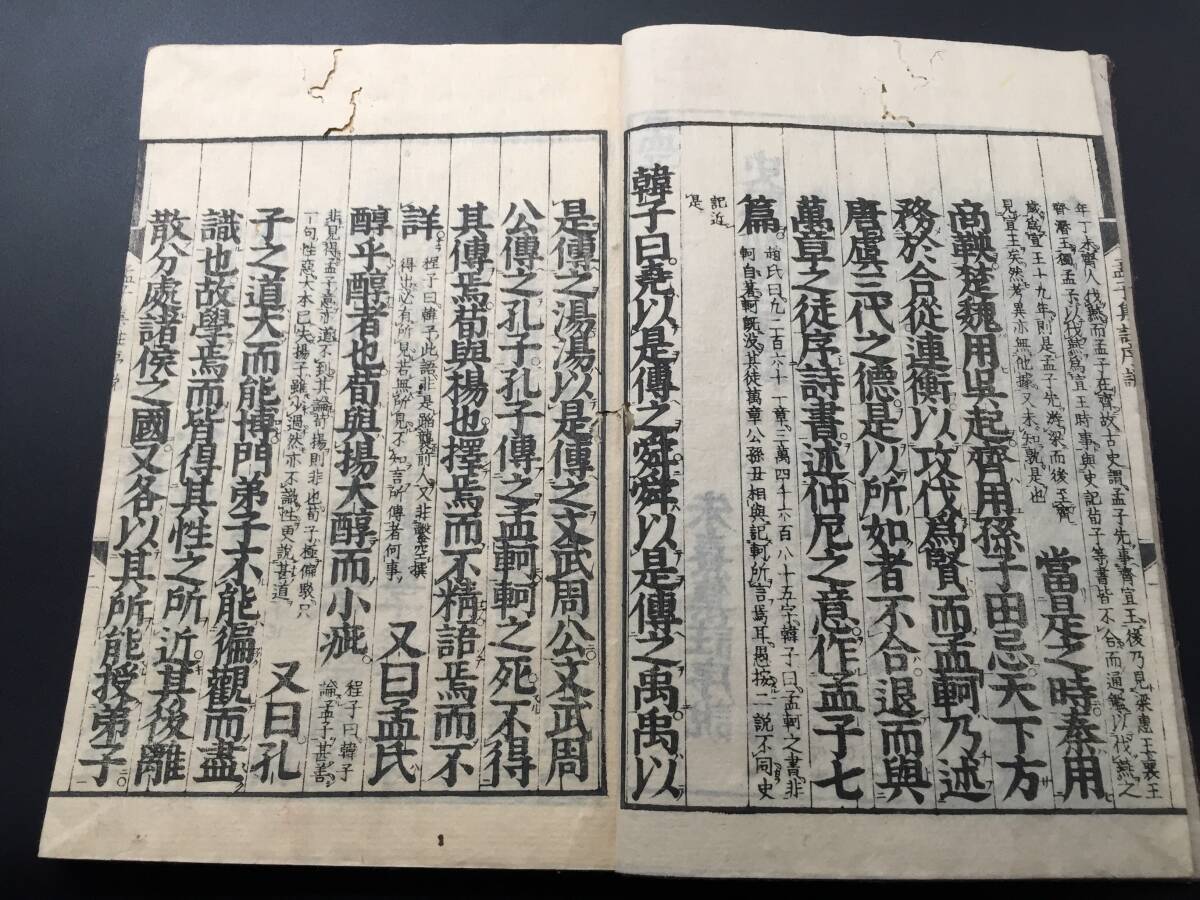 年丁未齊人伐燕而孟子在齊故古史謂孟子先事齊宣王後乃見梁惠王襄王
齊湣王獨孟子以伐燕爲宣王時事與史記荀子等書皆不合而通鑑以伐燕之
歲爲宣王十九年則是孟子先游梁而後至齊
見宣王矣然考異亦無他據又未知孰是也
當是之時秦用
商鞅楚魏用吳起齊用孫子田忌天下方
務於合從連衡以攻伐爲賢而孟軻乃述
唐虞三代之德是以所如者不合退而與
萬章之徒序詩書述仲尼之意作孟子七
篇
趙氏曰凡二百六十一章三萬四千六百八十五字韓子曰孟軻之書非
軻自著軻既沒其徒萬章公孫丑相與記軻所言焉耳愚按二說不同史
記近
是
韓子曰堯以是傳之舜舜以是傳之禹禹以
是傳之湯湯以是傳之文武周公文武周
公傳之孔子孔子傳之孟軻軻之死不得
其傳焉荀與楊也擇焉而不精語焉而不
詳
程子曰韓子此語非是蹈襲前人又非鑿空撰
得出必有所見若無所見不知言所傳者何事
又曰孟氏
醇乎醇者也荀與揚大醇而小疵
程子曰韓子
論孟子甚善
非見得孟子意亦道不到其論荀揚則非也荀子極偏駁只
一句性惡大本已失揚子雖少過然亦不識性更說甚道
又曰孔
子之道大而能博門弟子不能徧觀而盡
識也故學焉而皆得其性之所近其後離
散分處諸侯之國又各以其所能授弟子